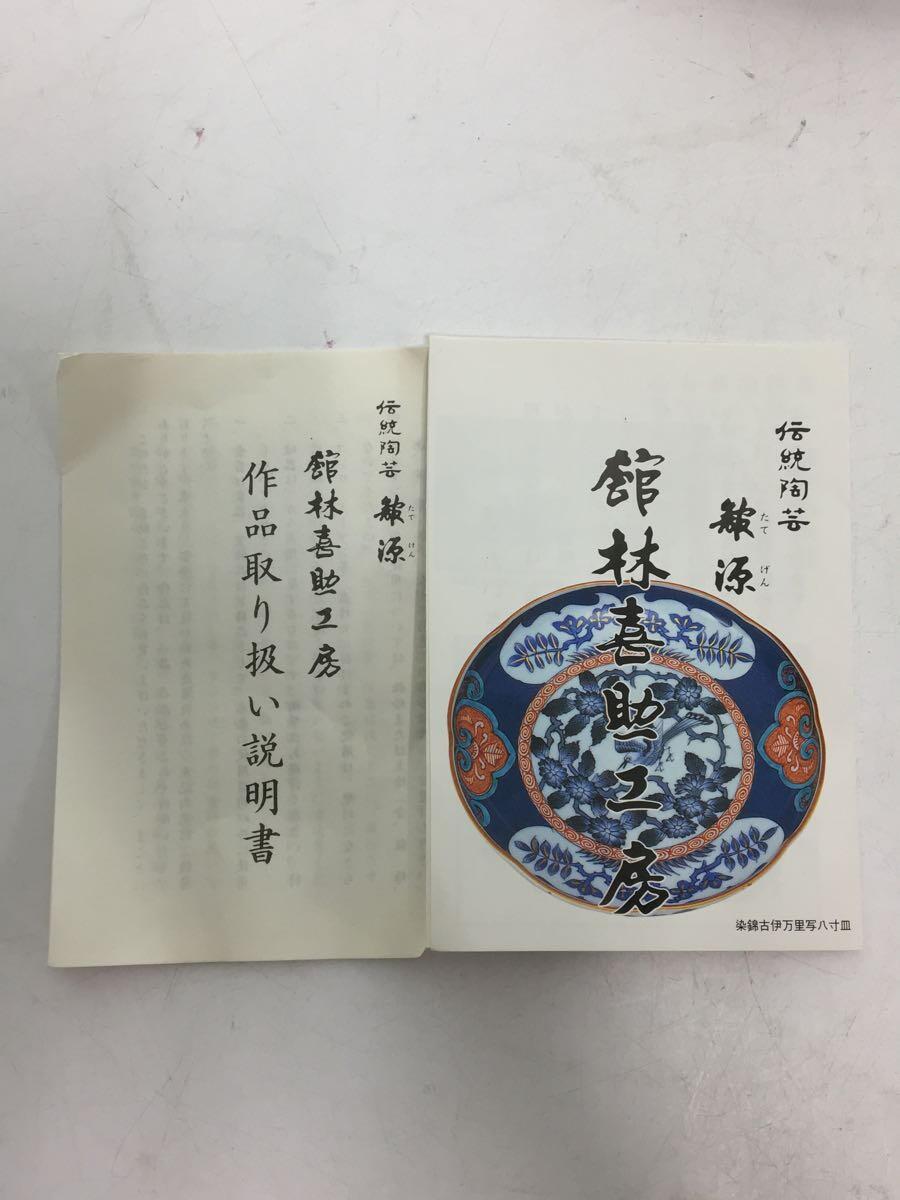 伝統陶芸
源
たて げん
館林喜助工房
染錦古伊万里写八寸皿
伝統陶芸 源
たて けん
館林喜助工房
作品取り扱い説明書